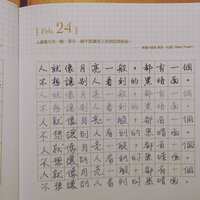 [ Feb. 24 ]
人就像月亮一般,都有一個
不想讓別人看到的黑暗面。
人就像月亮一般,都有一個
不想讓別人看到的黑暗面。
人就像月亮一般,都有一個
不想讓別人看到的黑暗面。
人就像月亮一般,都有一個
不想讓別人看到的黑暗面。